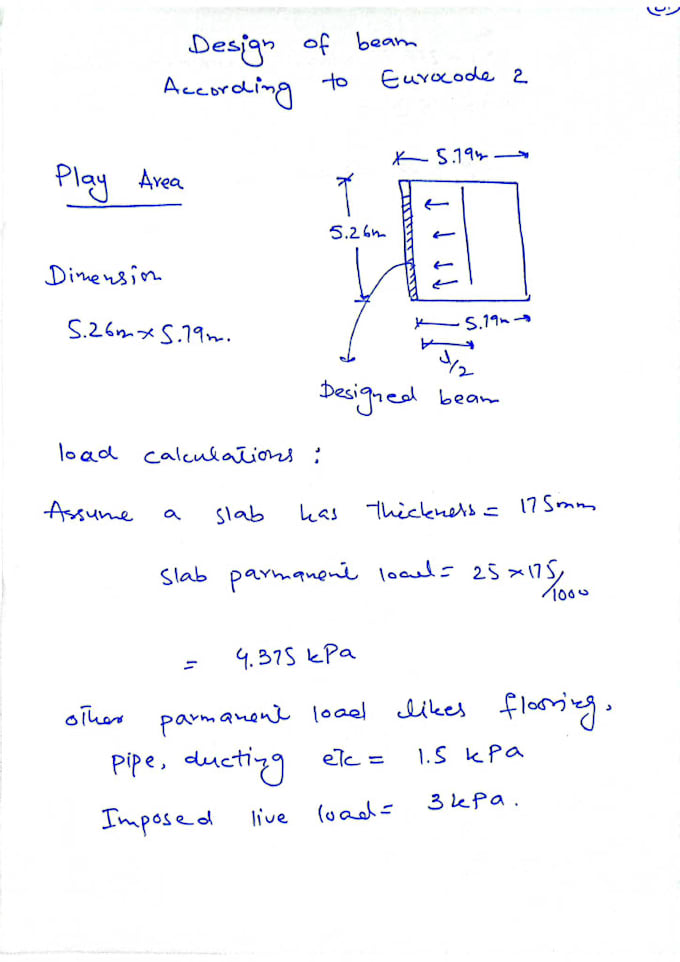 Design of beam
According to Eurocode 2
Play Area
5.79m
5.26m
Dimension
5.26m × 5.79m.
5.79m
1/2
Designed beam
load calculations :
Assume a slab has thickness = 175mm
slab parmanent load = 25 × 175/1000
= 4.375 kPa
other parmanent load likes flooring,
pipe, ducting etc = 1.5 kPa
Imposed live load = 3 kPa.